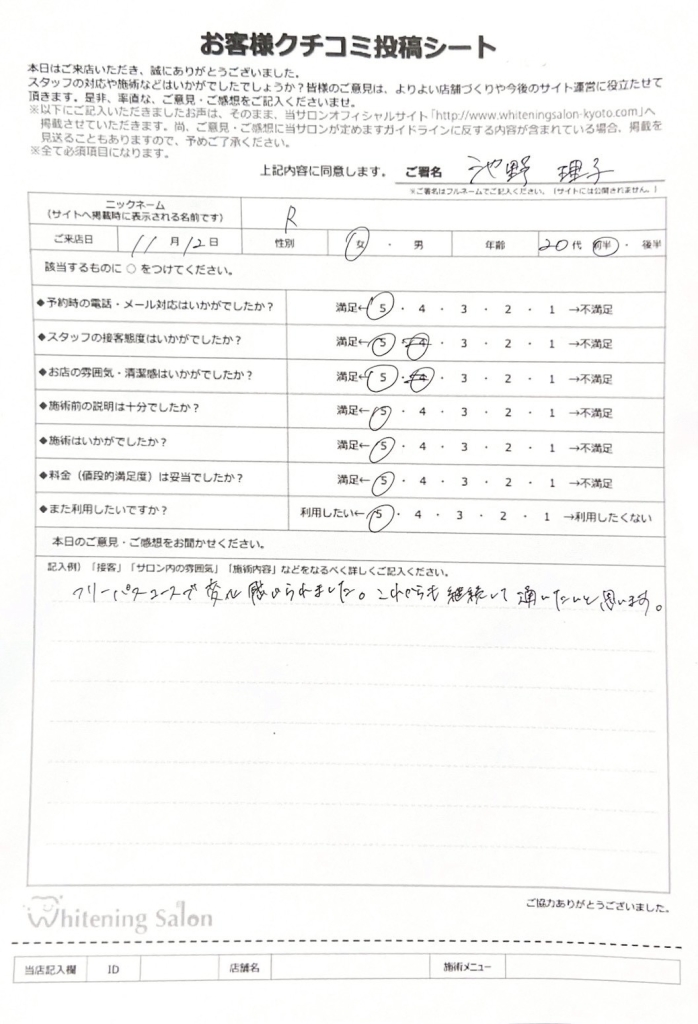 お客様クチコミ投稿シート
本日はご来店いただき、誠にありがとうございました。
スタッフの対応や施術などはいかがでしたでしょうか？皆様のご意見は、よりよい店舗づくりや今後のサイト運営に役立たせて
頂きます。是非、率直な、ご意見・ご感想をご記入くださいませ。
※以下にご記入いただきましたお声は、そのまま、当サロンオフィシャルサイト「http://www.whiteningsalon-kyoto.com」へ
掲載させていただきます。尚、ご意見・ご感想に当サロンが定めますガイドラインに反する内容が含まれている場合、掲載を
見送ることもありますので、予めご了承ください。
※全て必須項目になります。
上記内容に同意します。 ご署名 池野 理子
※ご署名はフルネームでご記入ください。（サイトには公開されません。）
ニックネーム
（サイトへ掲載時に表示される名前です） R
ご来店日 11月12日 性別 女 ・ 男 年齢 20代 前半 ・ 後半
該当するものに ○ をつけてください。
◆予約時の電話・メール対応はいかがでしたか？ 満足← 5 ・ 4 ・ 3 ・ 2 ・ 1 →不満足
◆スタッフの接客態度はいかがでしたか？ 満足← 5 ・ 4 ・ 3 ・ 2 ・ 1 →不満足
◆お店の雰囲気・清潔感はいかがでしたか？ 満足← 5 ・ 4 ・ 3 ・ 2 ・ 1 →不満足
◆施術前の説明は十分でしたか？ 満足← 5 ・ 4 ・ 3 ・ 2 ・ 1 →不満足
◆施術はいかがでしたか？ 満足← 5 ・ 4 ・ 3 ・ 2 ・ 1 →不満足
◆料金（値段的満足度）は妥当でしたか？ 満足← 5 ・ 4 ・ 3 ・ 2 ・ 1 →不満足
◆また利用したいですか？ 利用したい← 5 ・ 4 ・ 3 ・ 2 ・ 1 →利用したくない
本日のご意見・ご感想をお聞かせください。
記入例）「接客」「サロン内の雰囲気」「施術内容」などをなるべく詳しくご記入ください。
フリーパスコースで変化感じられました。これからも継続して通いたいと思います。
ご協力ありがとうございました。
Whitening Salon
当店記入欄 ID 店舗名 施術メニュー